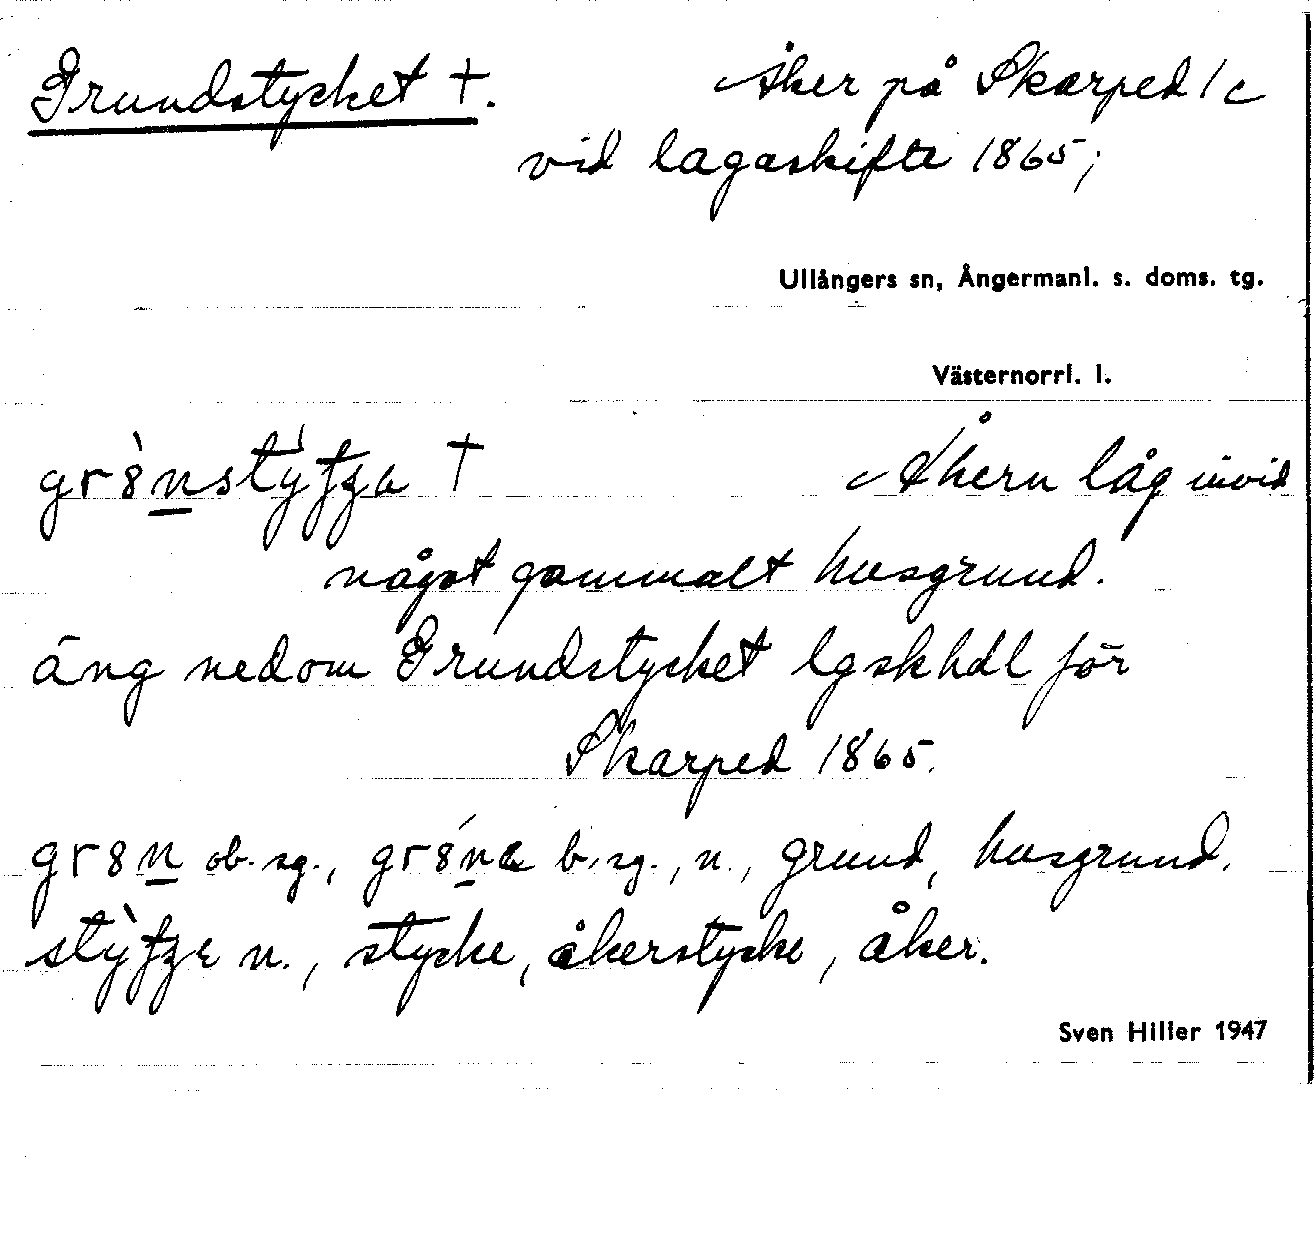 Grundstycket †. Åker på Skarped 1c
vid lagaskifte 1865;
Ullångers sn, Ångermanl. s. doms. tg.
Västernorrl. l.
† Åkern låg invid
något gammalt husgrund.
äng nedom Grundstycket lgskhdl för
Skarped 1865.
ob. sg., b. sg., n., grund, husgrund.
n., stycke, åkerstycke, åker.
Sven Hiller 1947